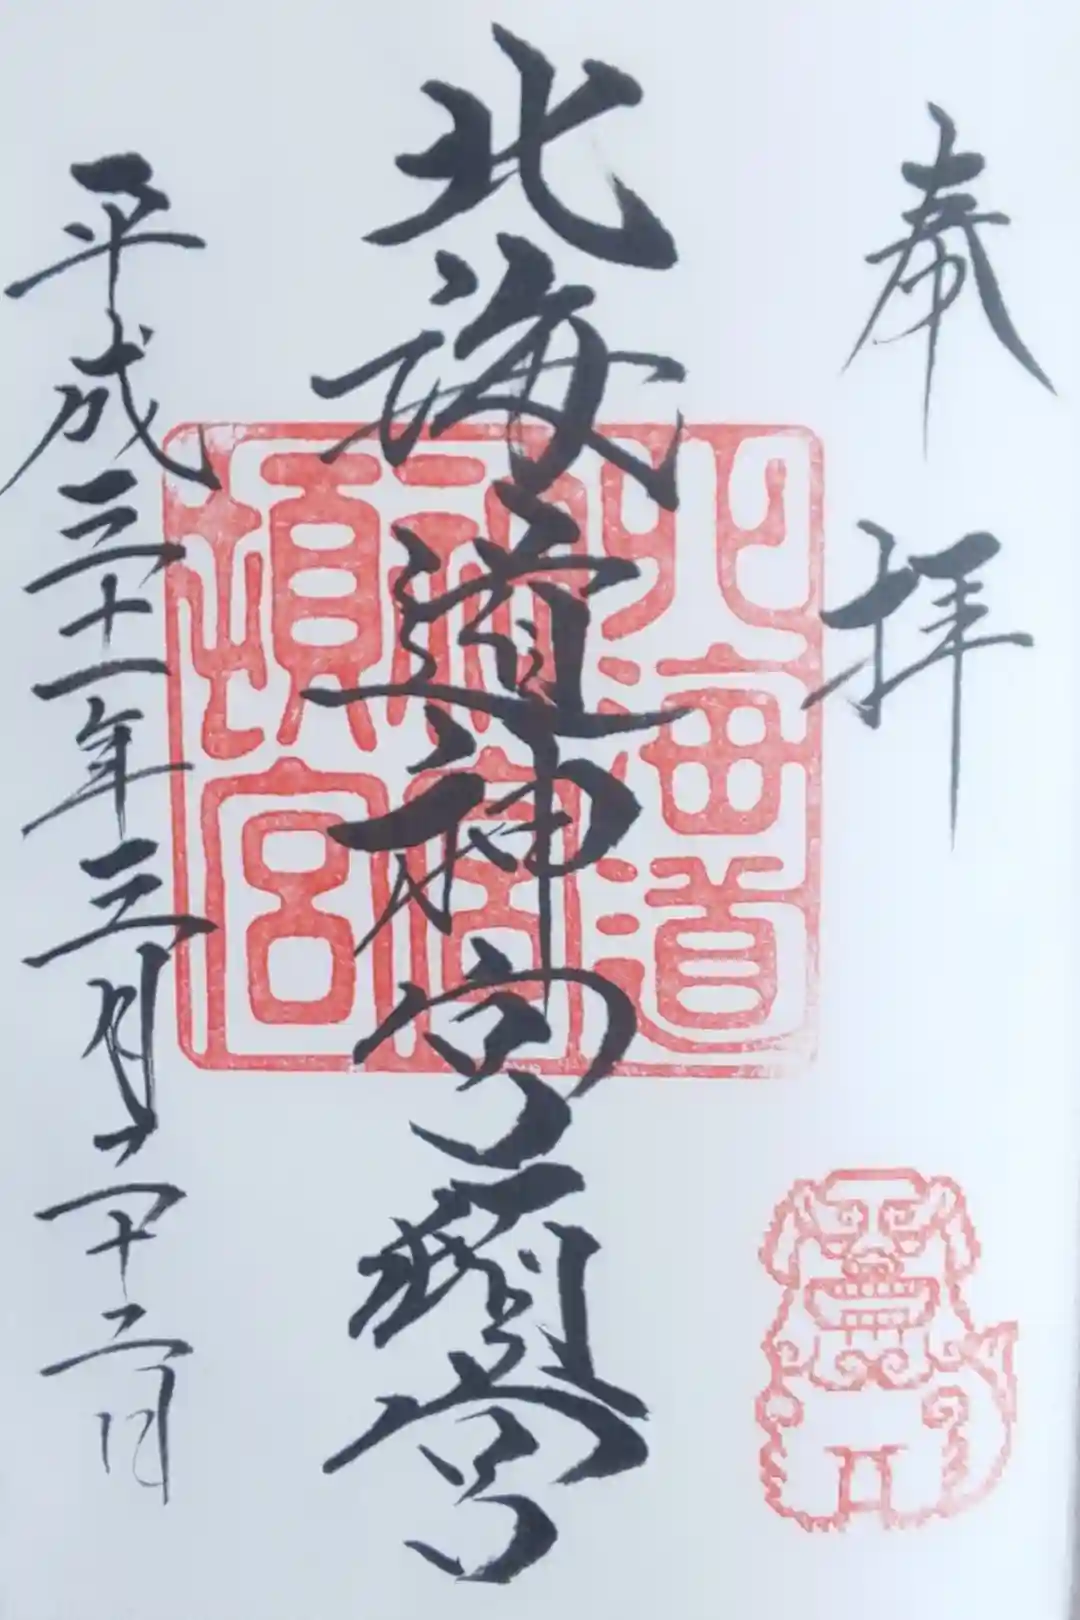 奉拝
北海道神宮頓宮
平成三十一年三月二十二日
北海道
神宮
頓宮